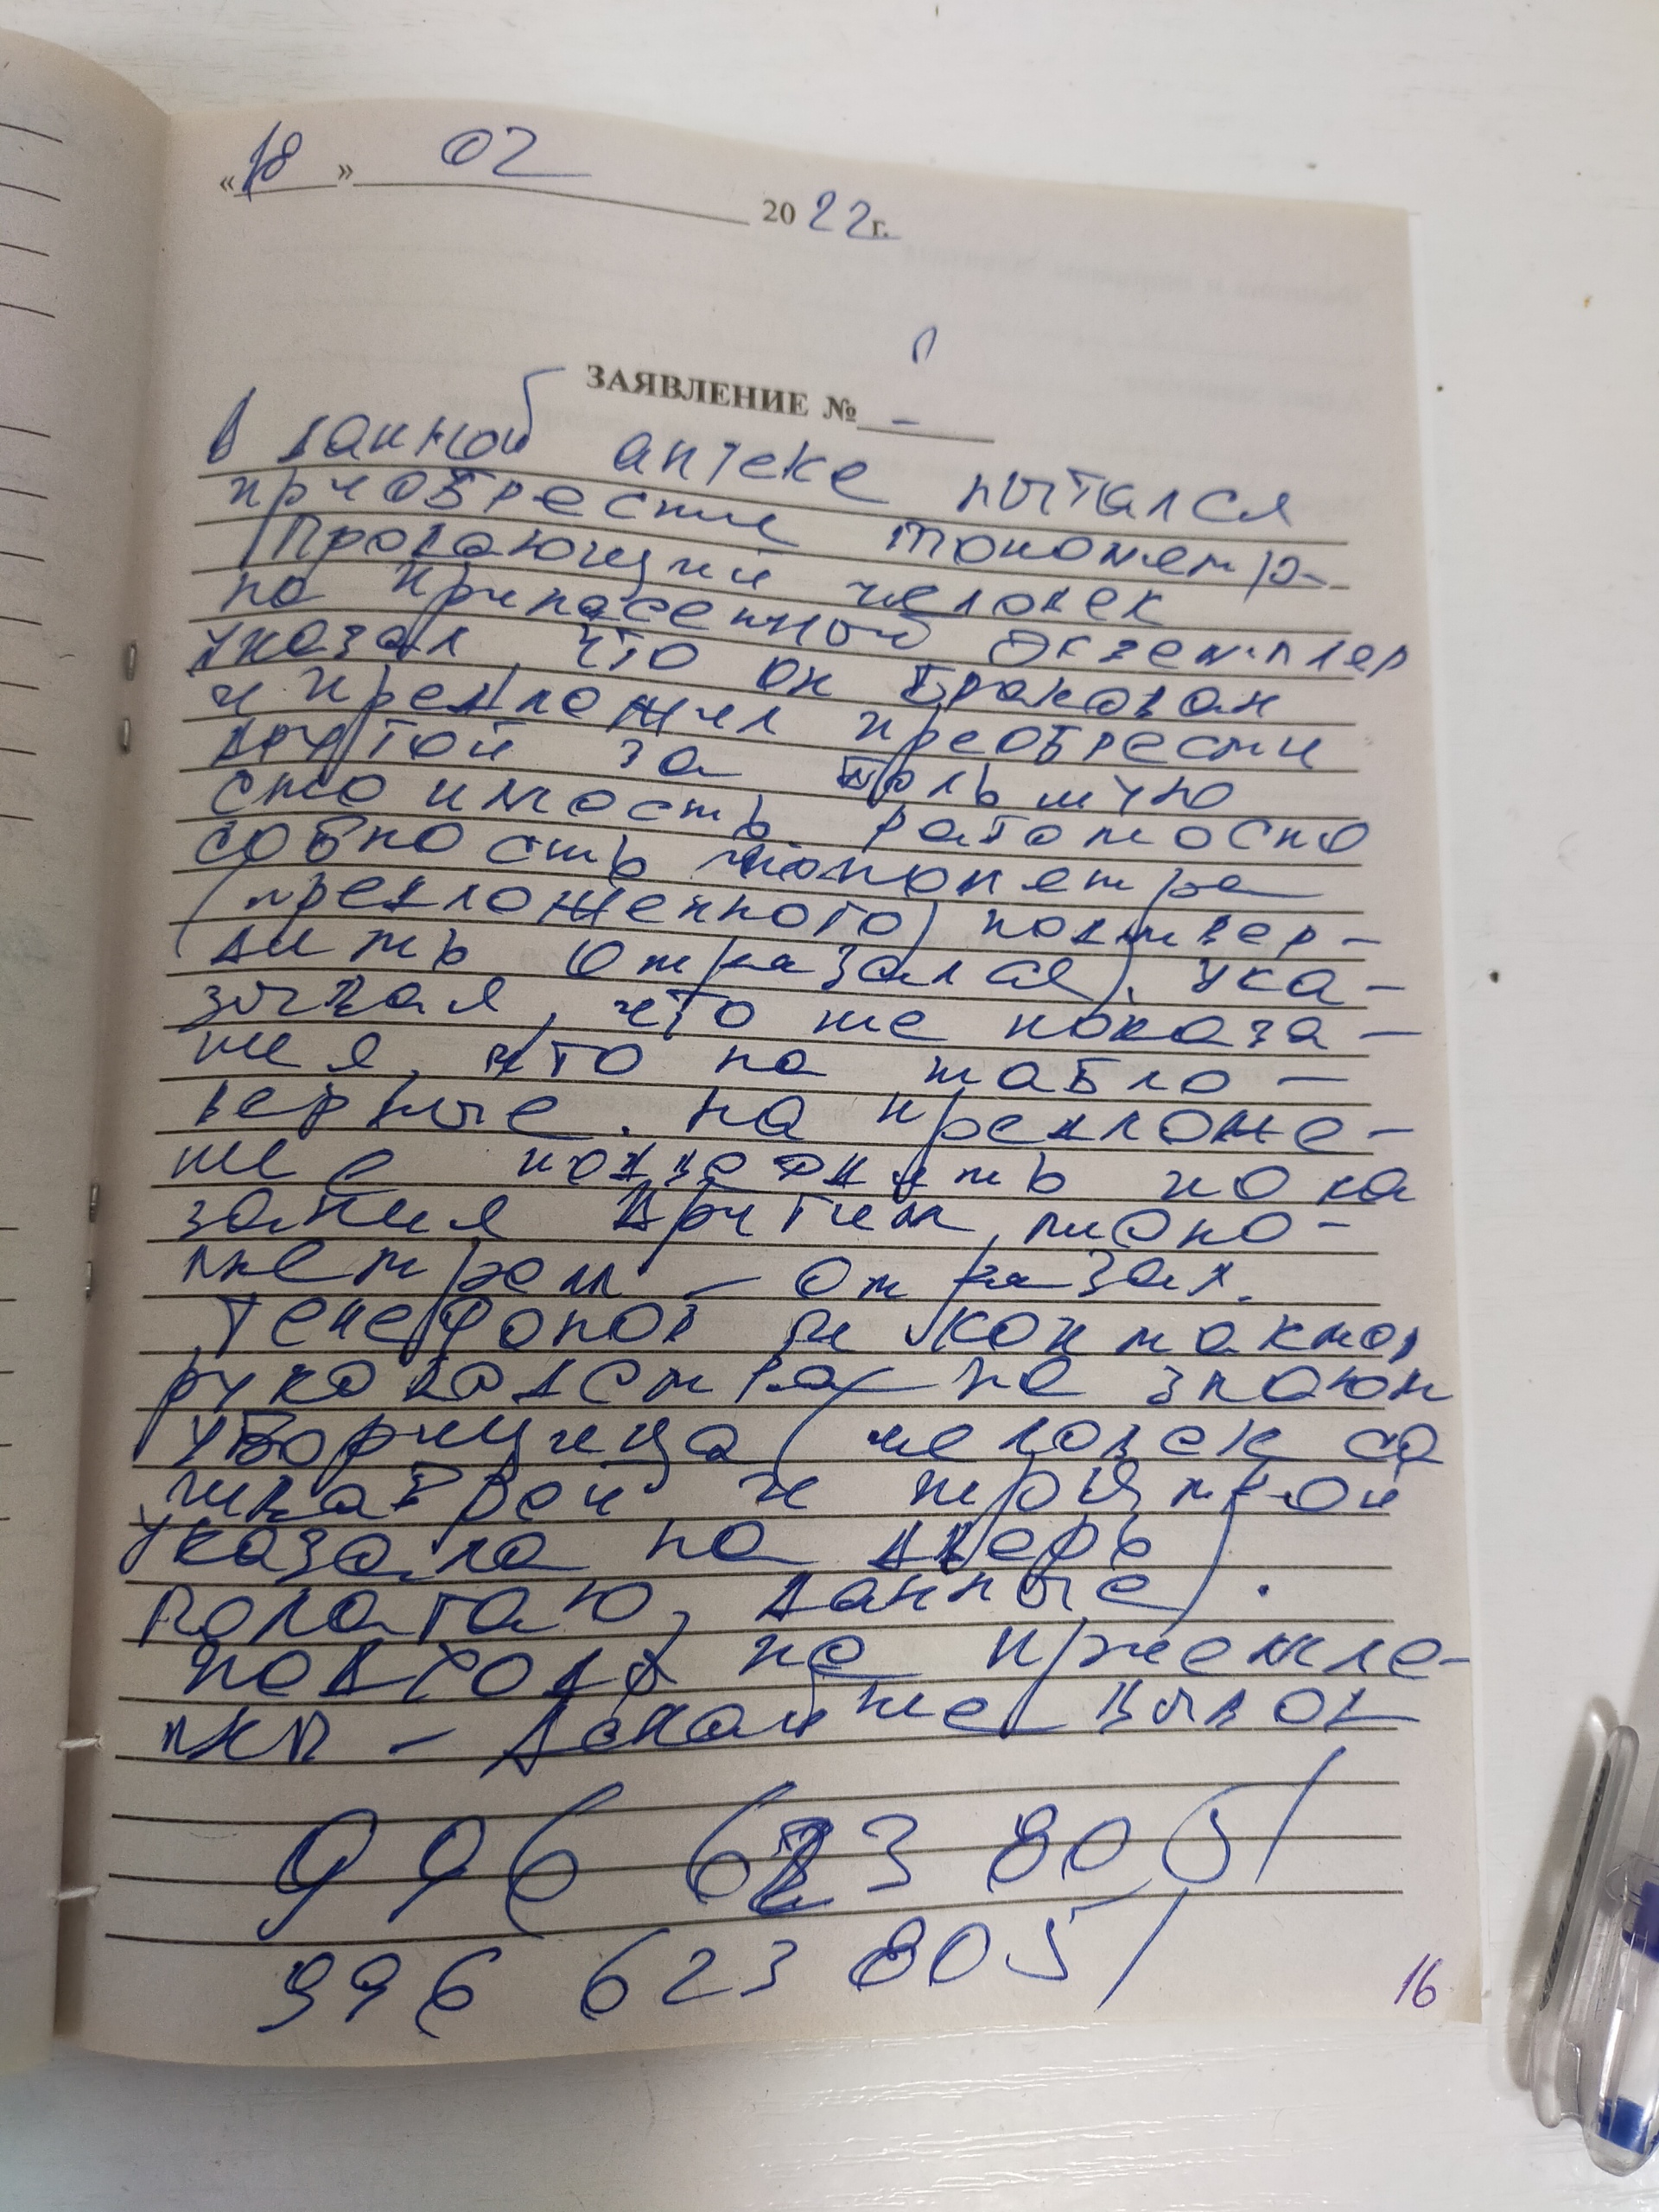 «18» 02 2022г.
ЗАЯВЛЕНИЕ № -
В данной аптеке пытался
приобрести тонометр.
Продающий человек
на принесенный экземпляр
указал, что он бракован
и предложил преобрести
другой за большую
стоимость. работоспо
собность тонометра
(предложенного) подтвер-
дить отказался). Ука-
зывая, что не показа-
ния, что на табло -
верные. На предложе-
ние подтвердить пока
зания другим, тоно-
метрем - отказал.
Телефонов и контактов
руководства не знают
уборщица (человек со
шваброй и тряпкой
указала на дверь).
Полагаю, данные
подход не приемле-
- Дальше вывод
996 623 805/
996 623 805/
16